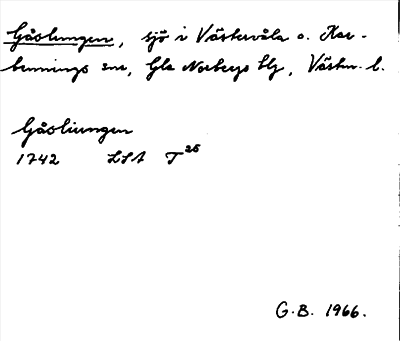 Gåslungen, sjö i Västervåla o. Kar-
bennings snr, Gla Norbergs blg, Västm. l.
Gåsliungen
1742 LSA T 25
G.B. 1966.